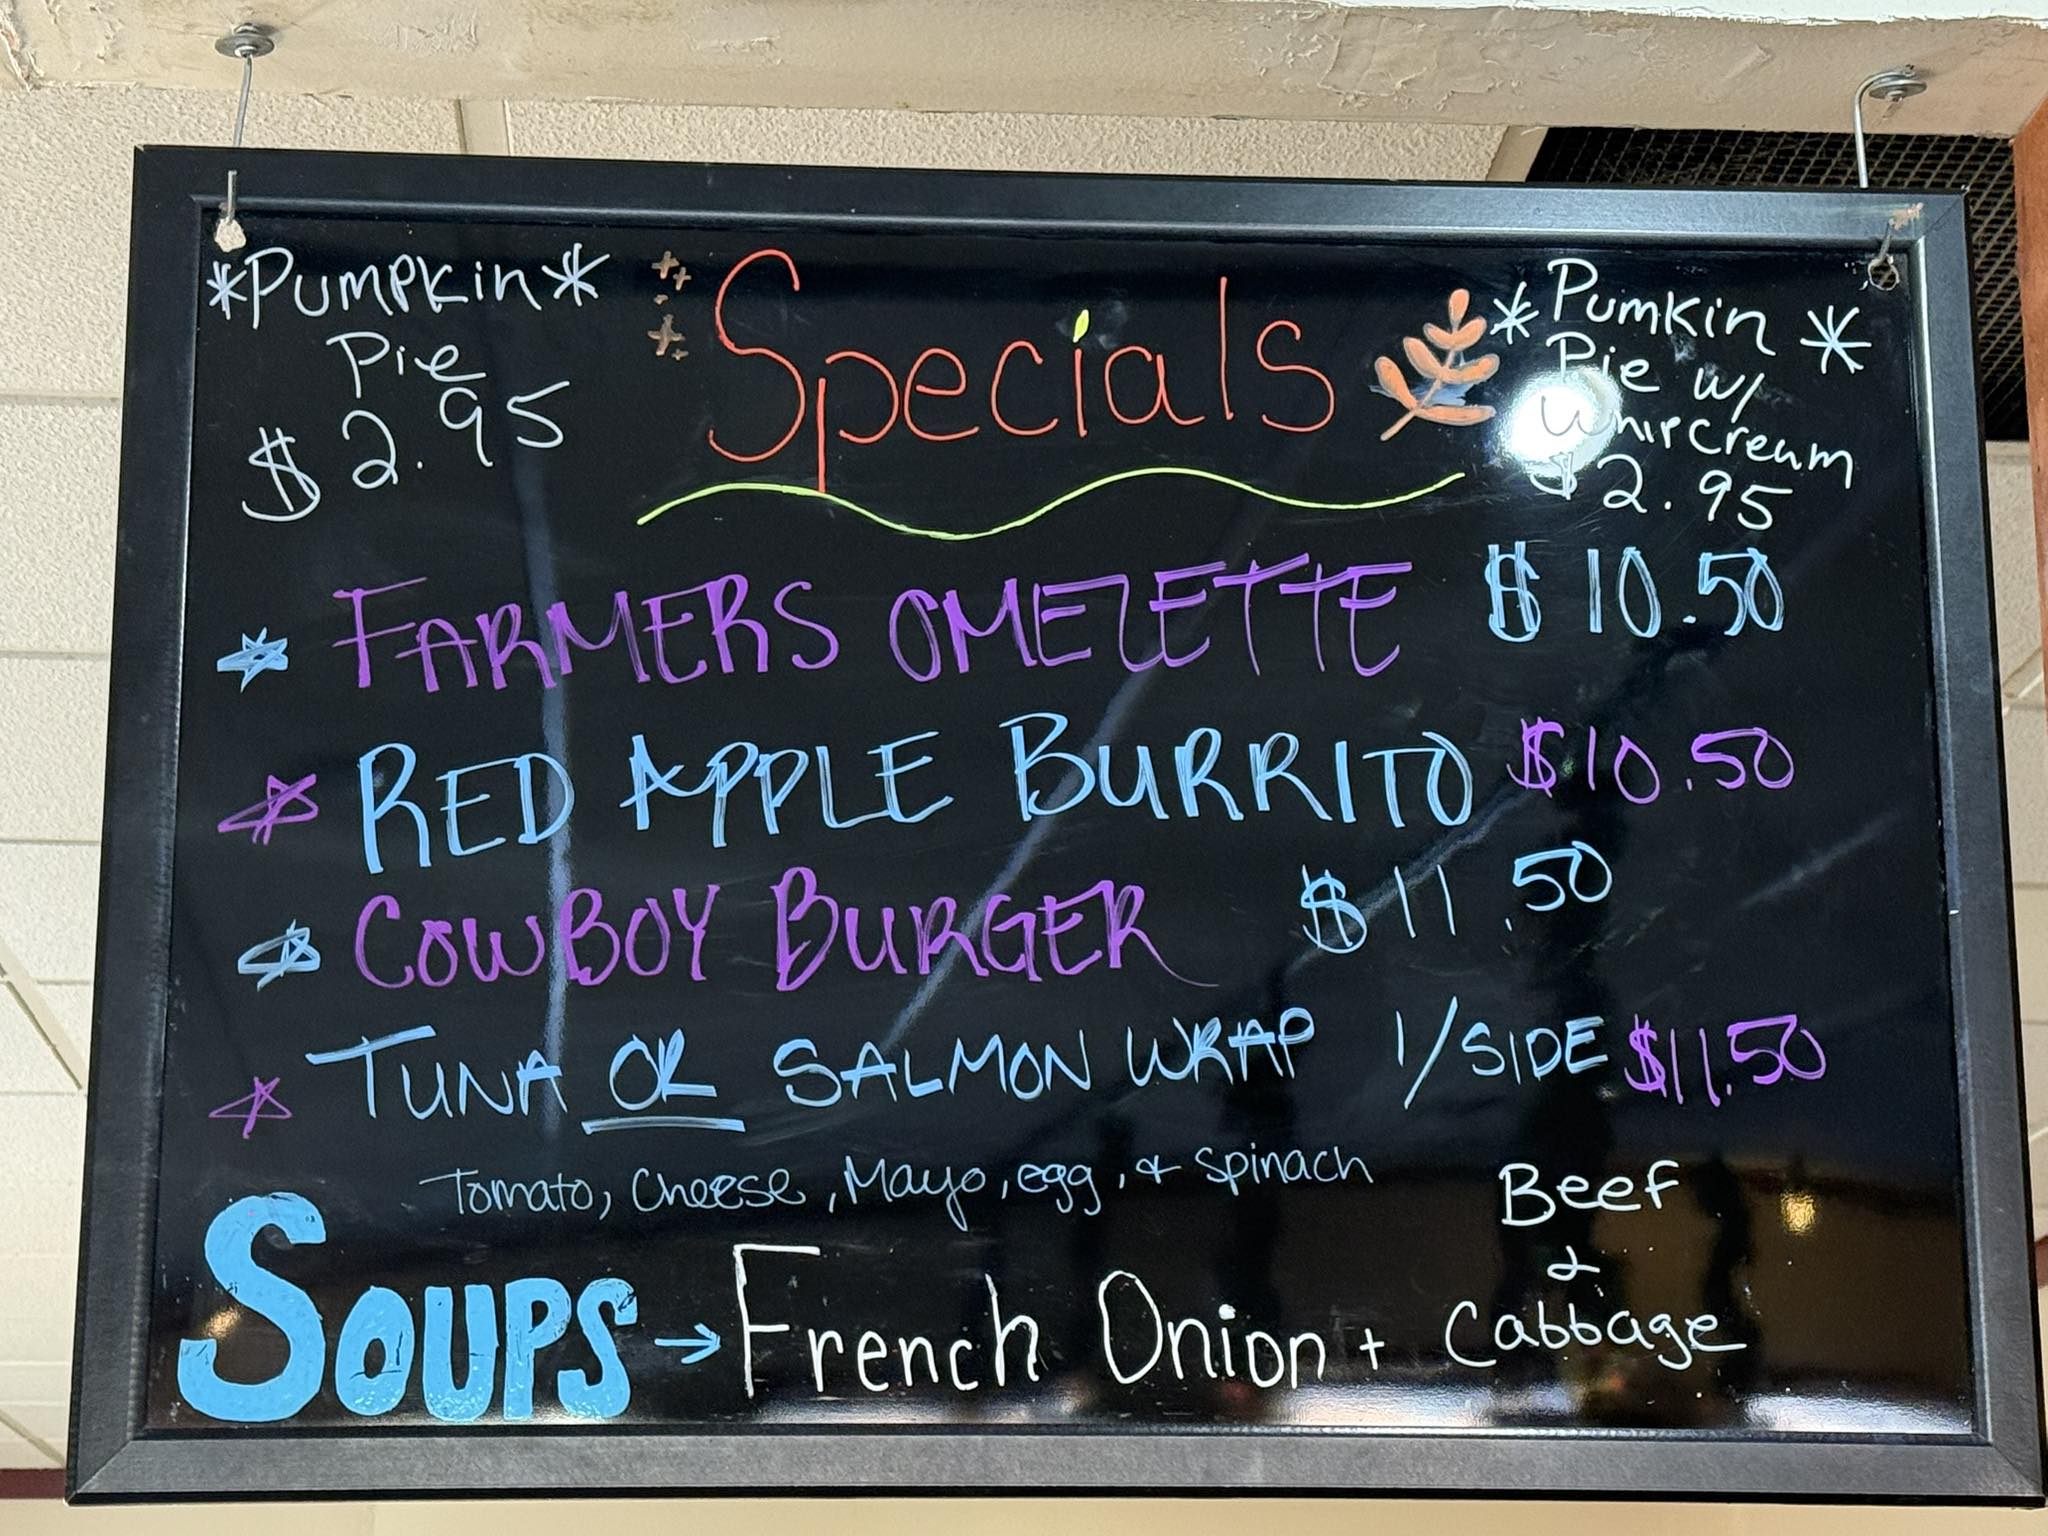 *Pumpkin*
Pie
$2.95
Specials
*Pumkin*
Pie w/
Whip Cream
$2.95
FARMERS OMELETTE $10.50
RED APPLE BURRITO $10.50
COWBOY BURGER $11.50
TUNA OR SALMON WRAP 1/SIDE $11.50
Tomato, Cheese, Mayo, egg, & Spinach
SOUPS → French Onion +
Beef
&
Cabbage